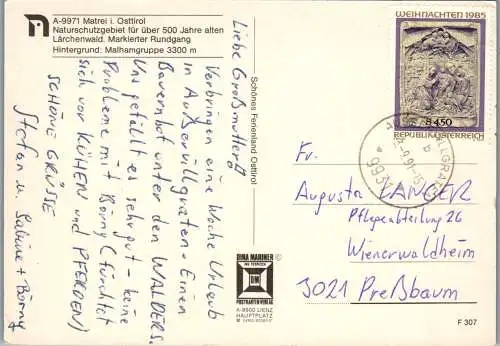 A-9971 Matrei i. Osttirol
Naturschutzgebiet für über 500 Jahre alten
Lärchenwald. Markierter Rundgang
Hintergrund: Malhamgruppe 3300 m
Liebe Großmutter!
Verbringen eine Woche Urlaub
in Außervillgraten - Einen
Bauernhof unter den WALDERS.
Uns gefällt es sehr gut - keine
Probleme mit Börny (fürchtet
sich vor KÜHEN und PFERDEN)
SCHÖNE GRÜSSE
Stefan u. Sabine + Börny
Schönes Ferienland Osttirol
DINA MARINER
DM
POSTKARTENVERLAG
A-9900 LIENZ
HAUPTPLATZ
WEIHNACHTEN 1985
S 4.50
REPUBLIK ÖSTERREICH
Fr.
Augusta LANGER
Pflegeabteilung 26
Wienerwaldheim
3021 Preßbaum
F 307